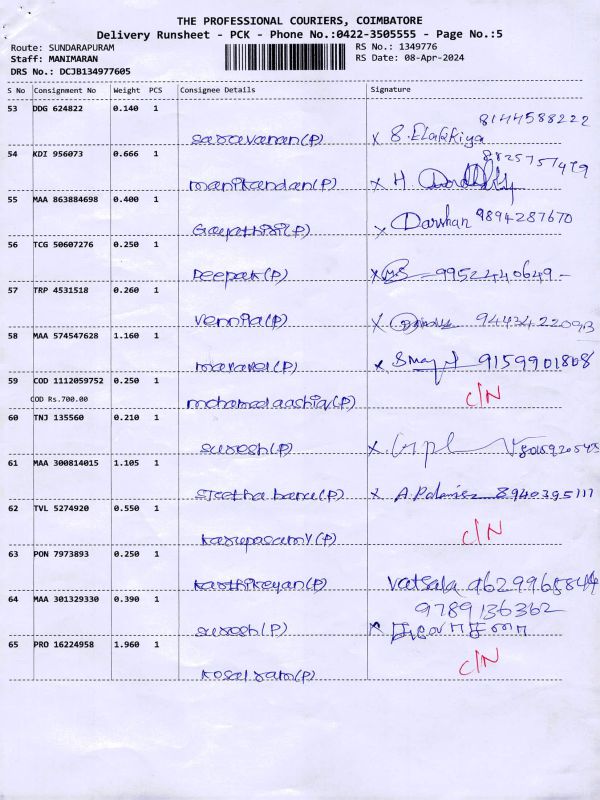 THE PROFESSIONAL COURIERS, COIMBATORE
Delivery Runsheet - PCK - Phone No.:0422-3505555 - Page No.:5
Route: SUNDARAPURAM RS No.: 1349776
Staff: MANIMARAN RS Date: 08-Apr-2024
DRS No.: DCJB134977605
S No Consignment No Weight PCS Consignee Details Signature
53 DDG 624822 0.140 1 8144588222
Saravanan(P) x S. Elakkiya
54 KDI 956073 0.666 1
manikandan(P) x H.
55 MAA 863884698 0.400 1
Gayathiri(P) x Darshan 9894287670
56 TCG 50607276 0.250 1
Deepak(P) x 9952440649
57 TRP 4531518 0.260 1
Vennila(P) x
58 MAA 574547628 1.160 1
maravel(P) x 9159901808
59 COD 1112059752 0.250 1
COD Rs.700.00
mohamed aashiq(P) C/N
60 TNJ 135560 0.210 1
Suresh(P) x
61 MAA 300814015 1.105 1
Steetha banu(P) x 8940395117
62 TVL 5274920 0.550 1
Karupasamy(P) C/N
63 PON 7973893 0.250 1
Karthikeyan(P) Vatsala
64 MAA 301329330 0.390 1 9789136362
Suresh(P) x
65 PRO 16224958 1.960 1
Kosalram(P) C/N